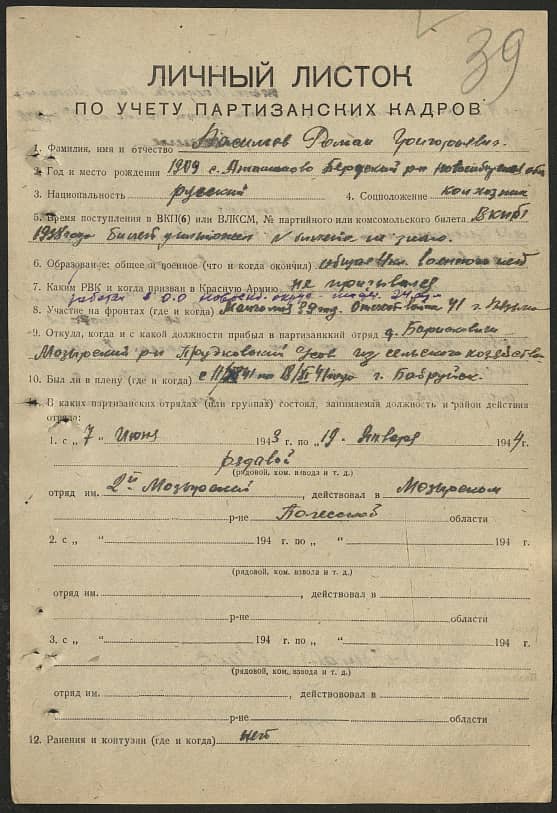 39
ЛИЧНЫЙ ЛИСТОК
ПО УЧЕТУ ПАРТИЗАНСКИХ КАДРОВ
1. Фамилия, имя и отчество Роман Григорьевич.
2. Год и место рождения 1909 с. Бердский р-н Новосибирской обл
3. Национальность русский 4. Соцположение колхозник
5. Время поступления в ВКП(б) или ВЛКСМ, № партийного или комсомольского билета В ВКП(б)
1938 года Билет уничтожен № билета не знаю.
6. Образование: общее и военное (что и когда окончил) общая военного нет
7. Каким РВК и когда призван в Красную Армию не призывался
работал в О.О
8. Участие на фронтах (где и когда) 39 год. 41 г.
9. Откуда, когда и с какой должности прибыл в партизанский отряд д.
Мозырский р-н с/сов из сельского хозяйства
10. Был ли в плену (где и когда) с 41 по г. Бобруйск.
11. В каких партизанских отрядах (или группах) состоял, занимаемая должность и район действия
отряда:
1. с „ 7 “ Июня 1943 г. по „ 19 “ Января 1944 г.
рядовой
(рядовой, ком. взвода и т. д.)
отряд им. 2й Мозырский , действовал в Мозырском
р-не Полесской области
2. с „ “ 194 г. по „ “ 194 г.
(рядовой, ком. взвода и т. д.)
отряд им. , действовал в
р-не области
3. с „ “ 194 г. по „ “ 194 г.
(рядовой, ком. взвода и т. д.)
отряд им. , действовал в
р-не области
12. Ранения и контузии (где и когда) нет